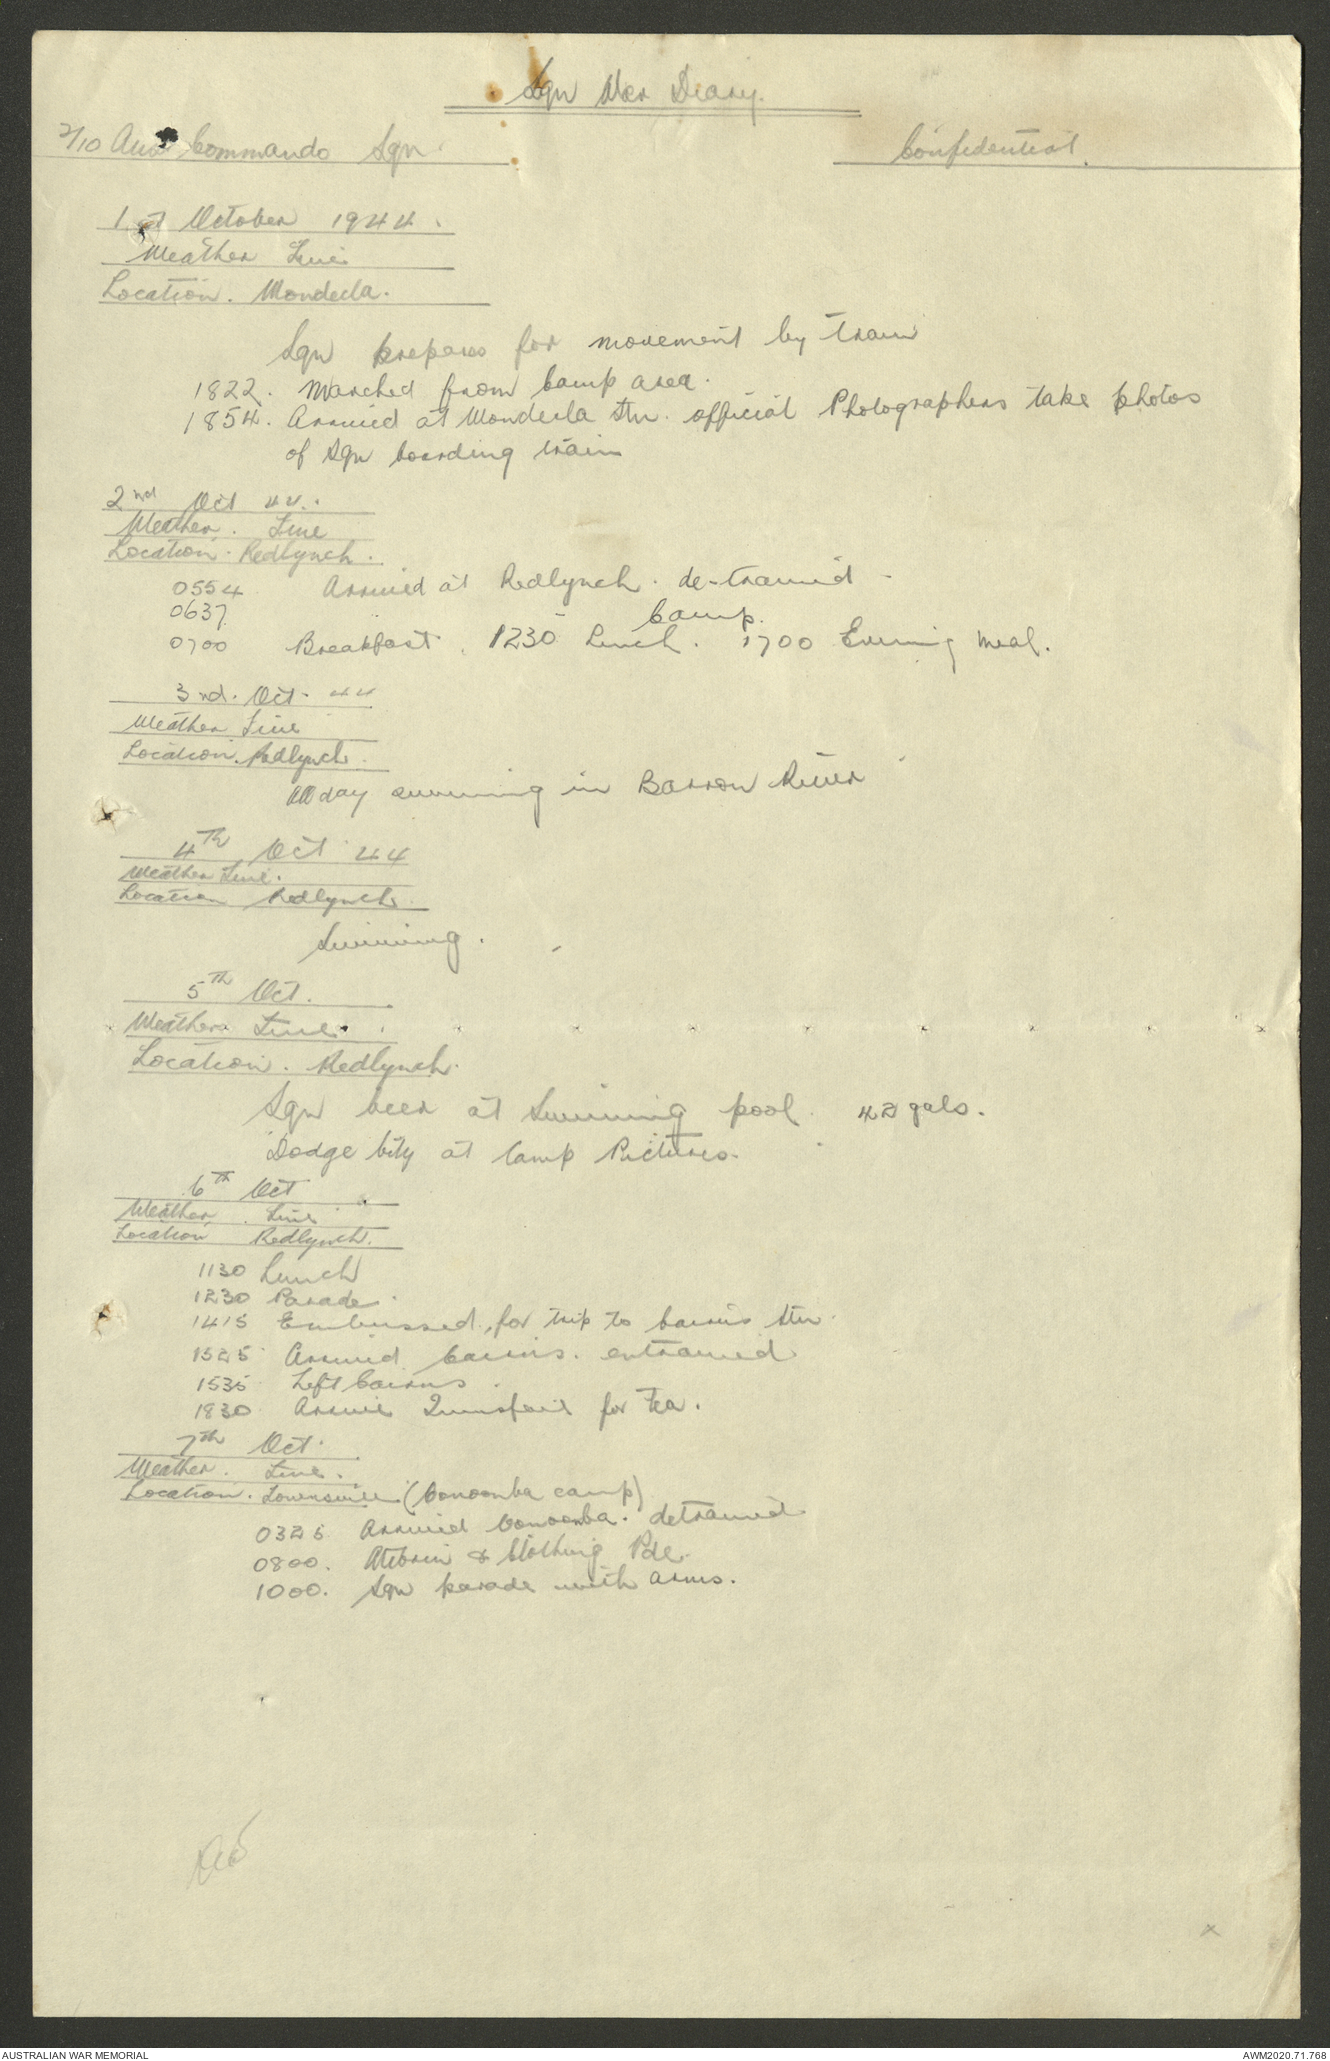 Sqn War Diary.
2/10 Aust Commando Sqn. Confidential.
1st October 1944.
Weather Fine
Location. Wondecla.
Sqn prepares for movement by train
1822. Marched from Camp area.
1854. Arrived at Wondecla Stn. official Photographers take photos
of Sqn boarding train
2nd Oct 44.
Weather. Fine
Location. Redlynch.
0554 Arrived at Redlynch. de-trained
0637 Camp.
0700 Breakfast. 1230 Lunch. 1700 Evening meal.
3nd. Oct. 44
Weather Fine
Location. Redlynch.
All day swimming in Barron River
4th Oct 44
Weather Fine.
Location Redlynch.
Swimming.
5th Oct.
Weather Fine.
Location. Redlynch.
Sqn beer at Swimming pool. 42 gals.
Dodge City at Camp Pictures.
6th Oct
Weather. Fine
Location Redlynch.
1130 Lunch
1230 Parade.
1415 Embussed, for trip to Cairns Stn.
1525 Arrived Cairns. entrained
1535 Left Cairns.
1830 Arrive Innisfail for Tea.
7th Oct.
Weather. Fine.
Location. Townsville (Oonoonba camp)
0325 Arrived Oonoonba. detrained
0800. Atebrin & Clothing Pde.
1000. Sqn parade with arms.
AUSTRALIAN WAR MEMORIAL AWM2020.71.768